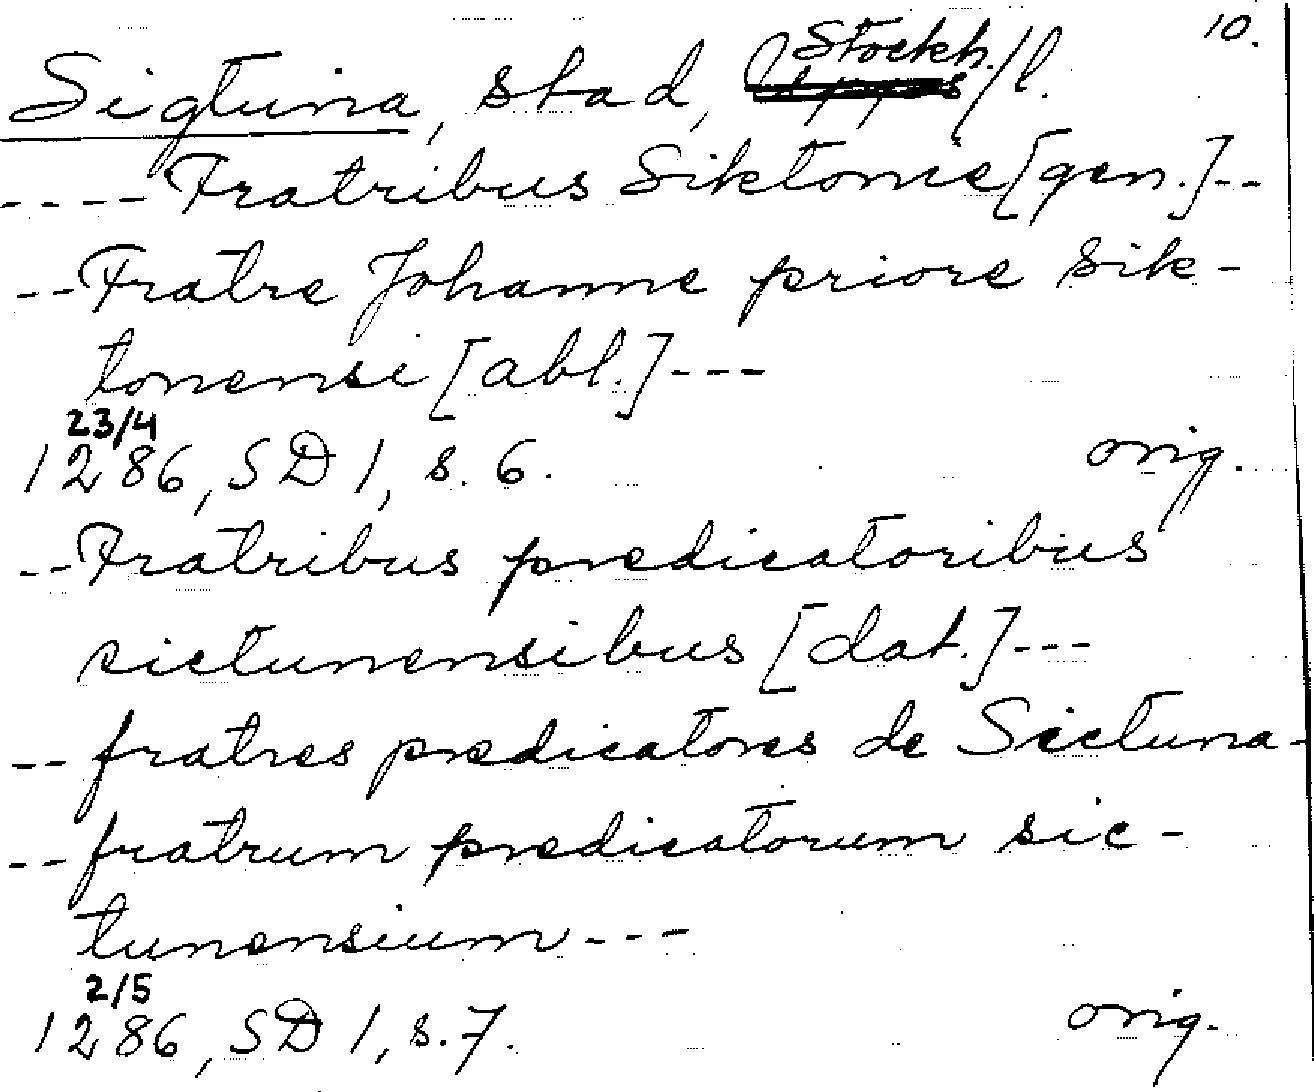 10.
Sigtuna, stad, Stockh./l.
---- Fratribus Siktonie [gen.]--
--Fratre Johanne priore Sik-
tonensi [abl.]---
23/4
1286, SD 1, s. 6. orig.
--Fratribus predicatoribus
sictunensibus [dat.]---
-- fratres predicatores de Sictuna-
-- fratrum predicatorum sic-
tunensium---
2/5
1286, SD 1, s. 7. orig.